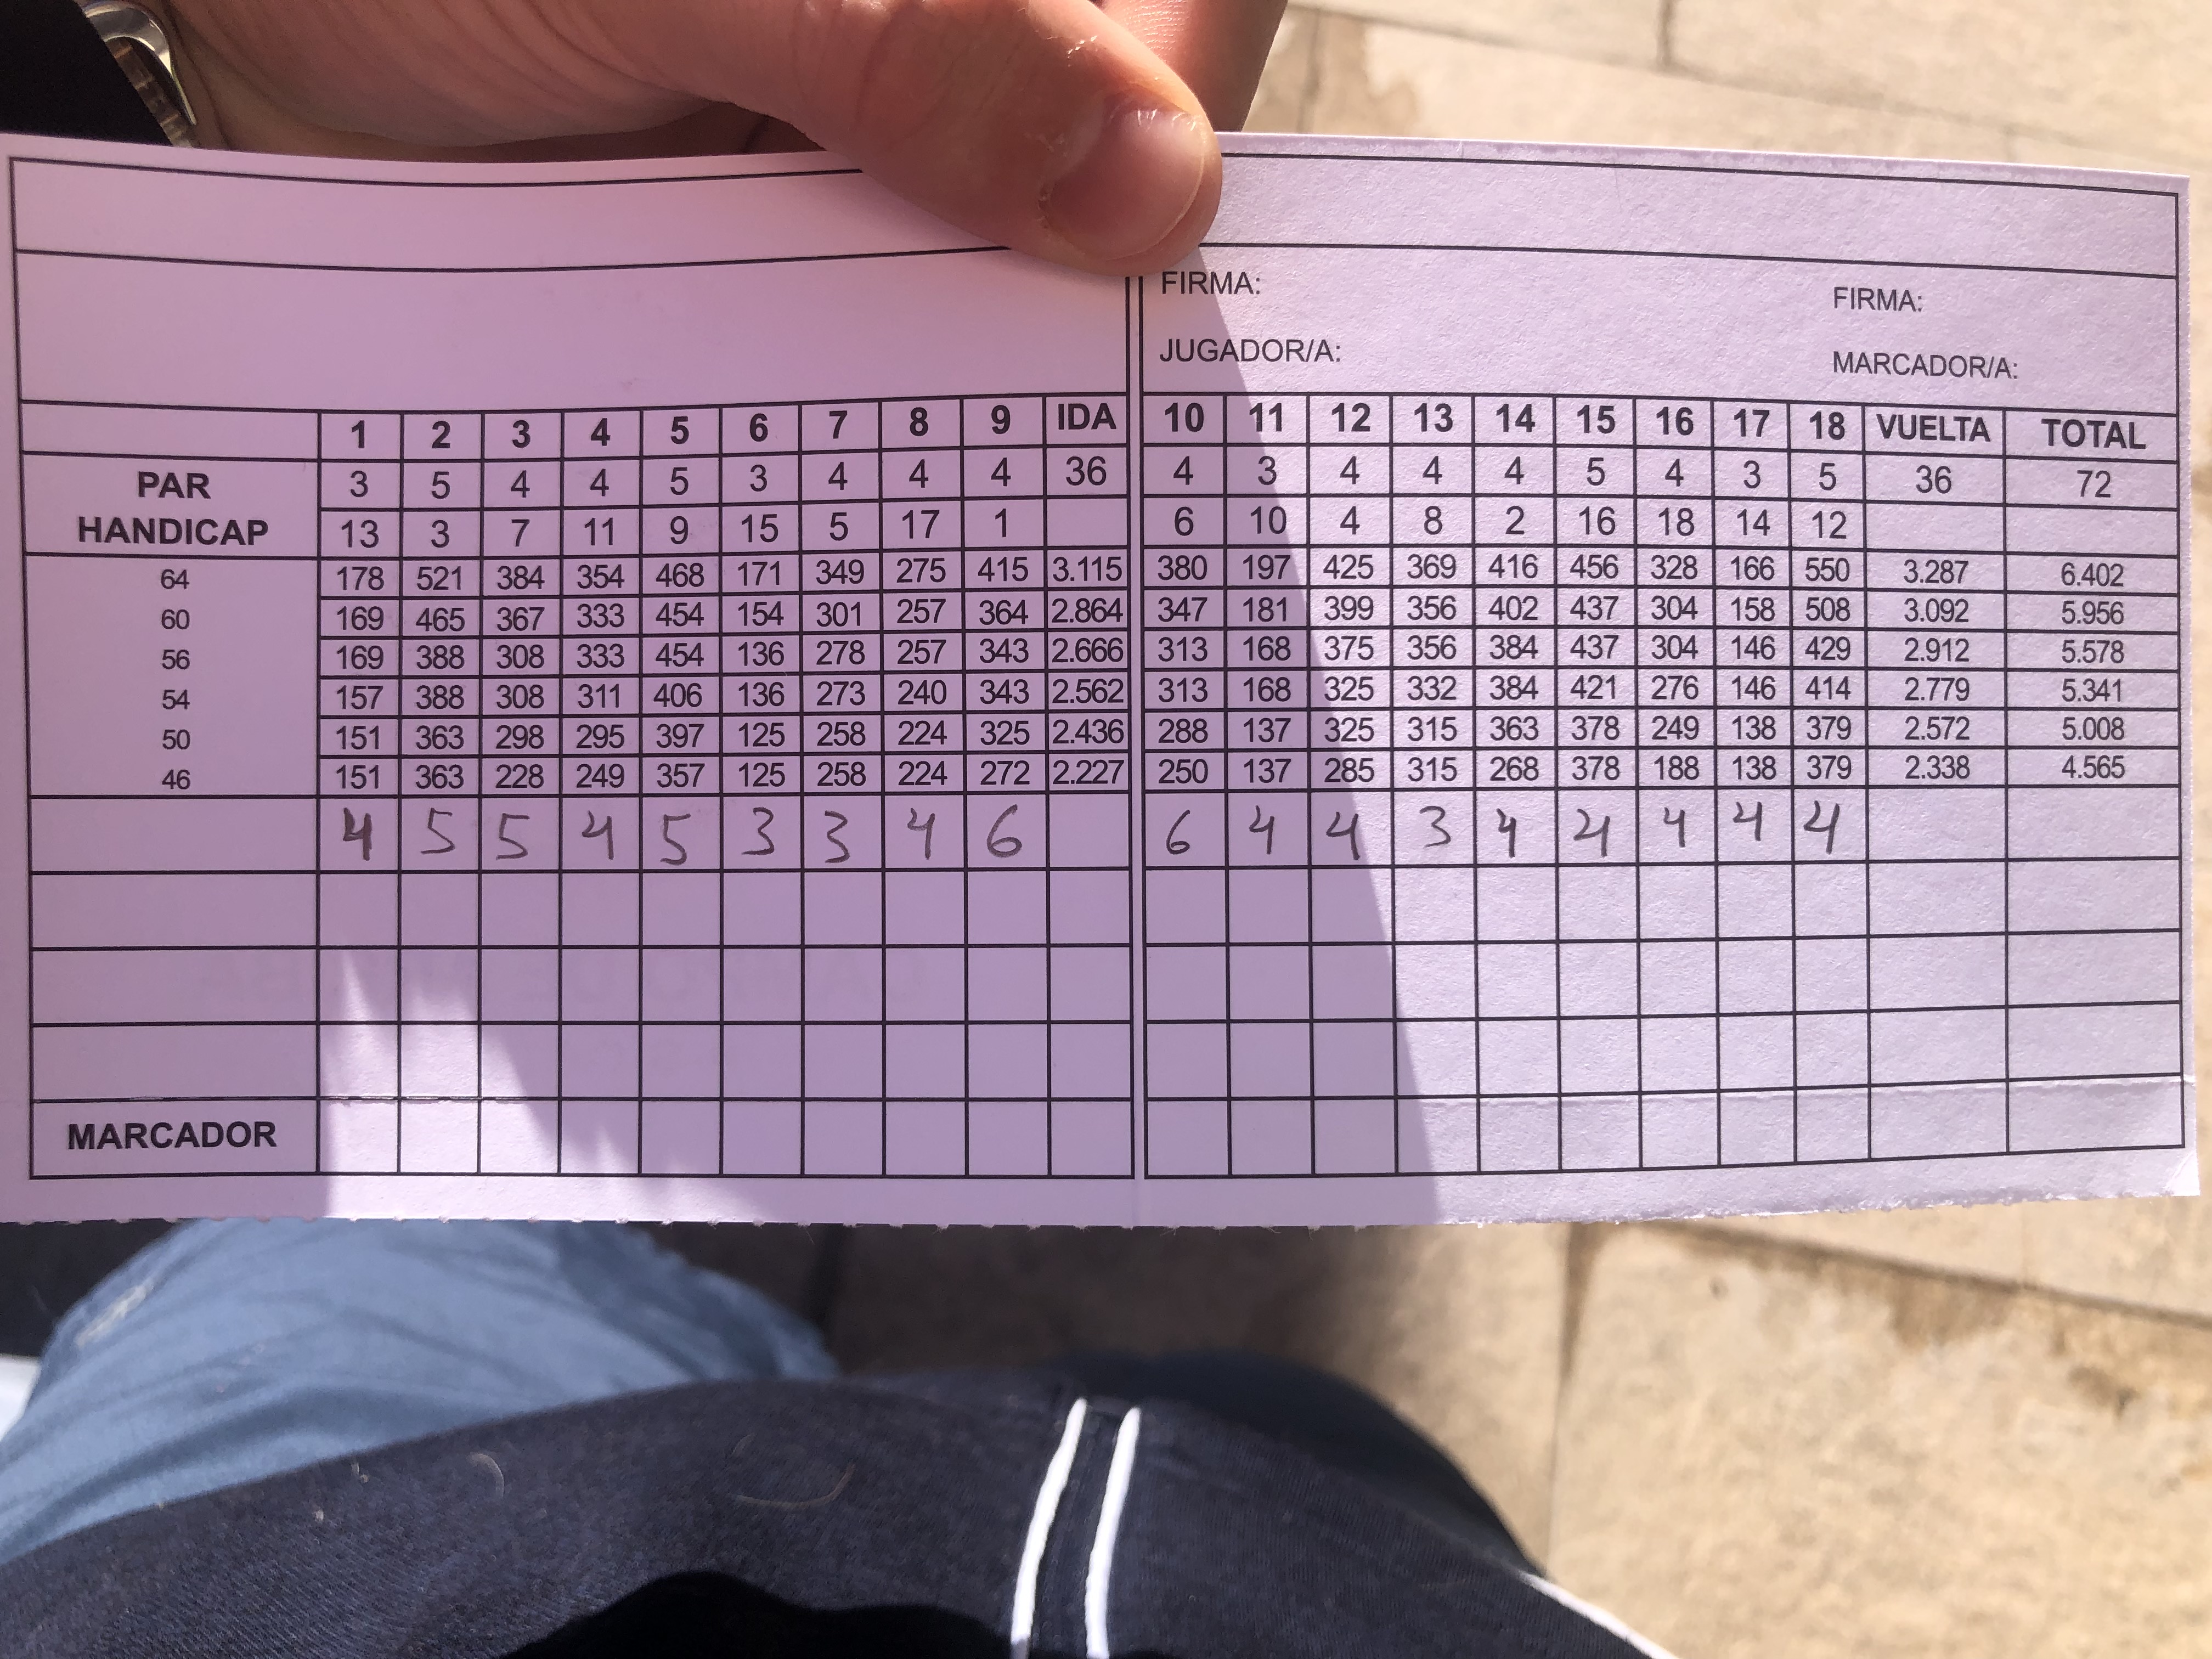 FIRMA: FIRMA:
JUGADOR/A: MARCADOR/A:
1 2 3 4 5 6 7 8 9 IDA 10 11 12 13 14 15 16 17 18 VUELTA TOTAL
PAR 3 5 4 4 5 3 4 4 4 36 4 3 4 4 4 5 4 3 5 36 72
HANDICAP 13 3 7 11 9 15 5 17 1 6 10 4 8 2 16 18 14 12
64 178 521 384 354 468 171 349 275 415 3.115 380 197 425 369 416 456 328 166 550 3.287 6.402
60 169 465 367 333 454 154 301 257 364 2.864 347 181 399 356 402 437 304 158 508 3.092 5.956
56 169 388 308 333 454 136 278 257 343 2.666 313 168 375 356 384 437 304 146 429 2.912 5.578
54 157 388 308 311 406 136 273 240 343 2.562 313 168 325 332 384 421 276 146 414 2.779 5.341
50 151 363 298 295 397 125 258 224 325 2.436 288 137 325 315 363 378 249 138 379 2.572 5.008
46 151 363 228 249 357 125 258 224 272 2.227 250 137 285 315 268 378 188 138 379 2.338 4.565
4 5 5 4 5 3 3 4 6 6 4 4 3 4 4 4 4 4
MARCADOR